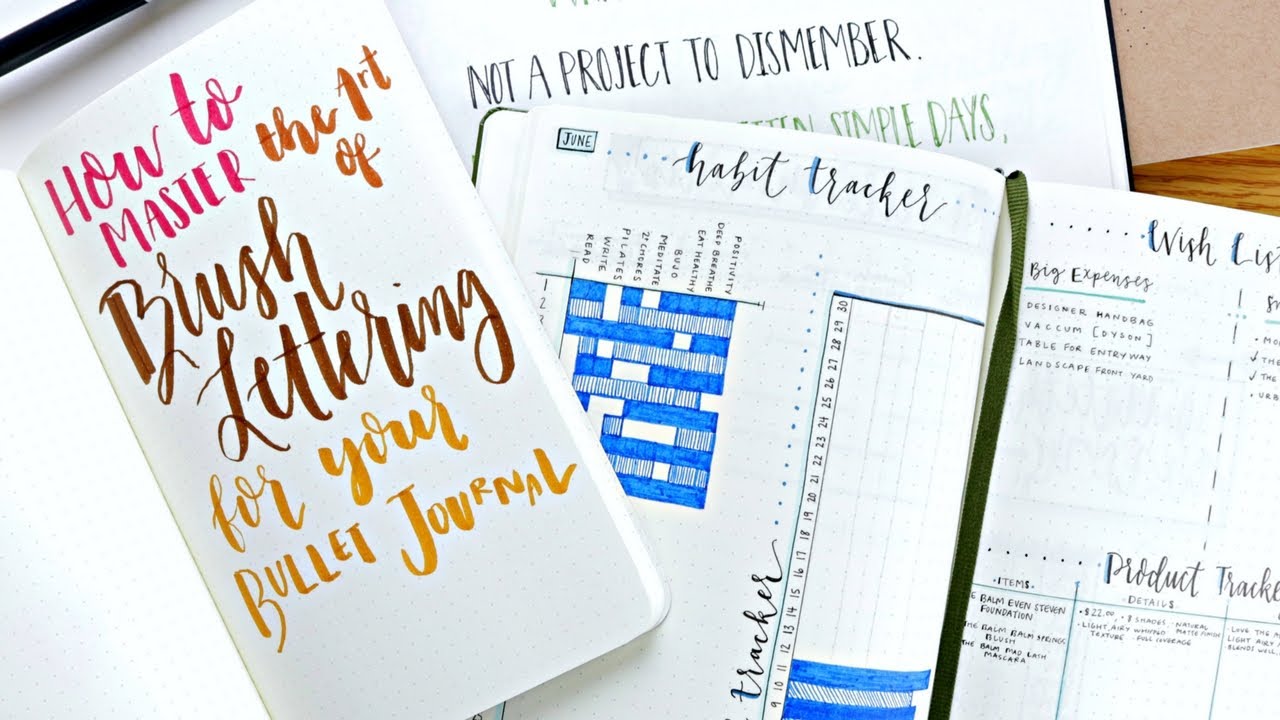 How to
Master the Art
of
Brush
Lettering
for your
Bullet Journal
NOT A PROJECT TO DISMEMBER.
SIMPLE DAYS,
JUNE
habit tracker
READ
WRITE
PILATES
MEDITATE
BUJO
EAT HEALTHY
DEEP BREATHE
POSITIVITY
1
2
3
30
29
28
27
26
25
24
23
22
21
20
19
18
17
16
15
14
13
12
11
10
9
tracker
Wish List
Big Expenses
DESIGNER HANDBAG
VACCUM [DYSON]
TABLE FOR ENTRYWAY
LANDSCAPE FRONT YARD
✓ THE
✓ THE
• URB
Product Tracke
ITEMS
DETAILS
THE BALM EVEN STEVEN
FOUNDATION
THE BALM BALM SPRINGS
BLUSH
THE BALM MAD LASH
MASCARA
• $22.00 • 8 SHADES • NATURAL
• LIGHT, AIRY WHIPPED MATTE FINISH
TEXTURE • FULL COVERAGE
LOVE THE
LIGHT AIRY
BLENDS WELL,